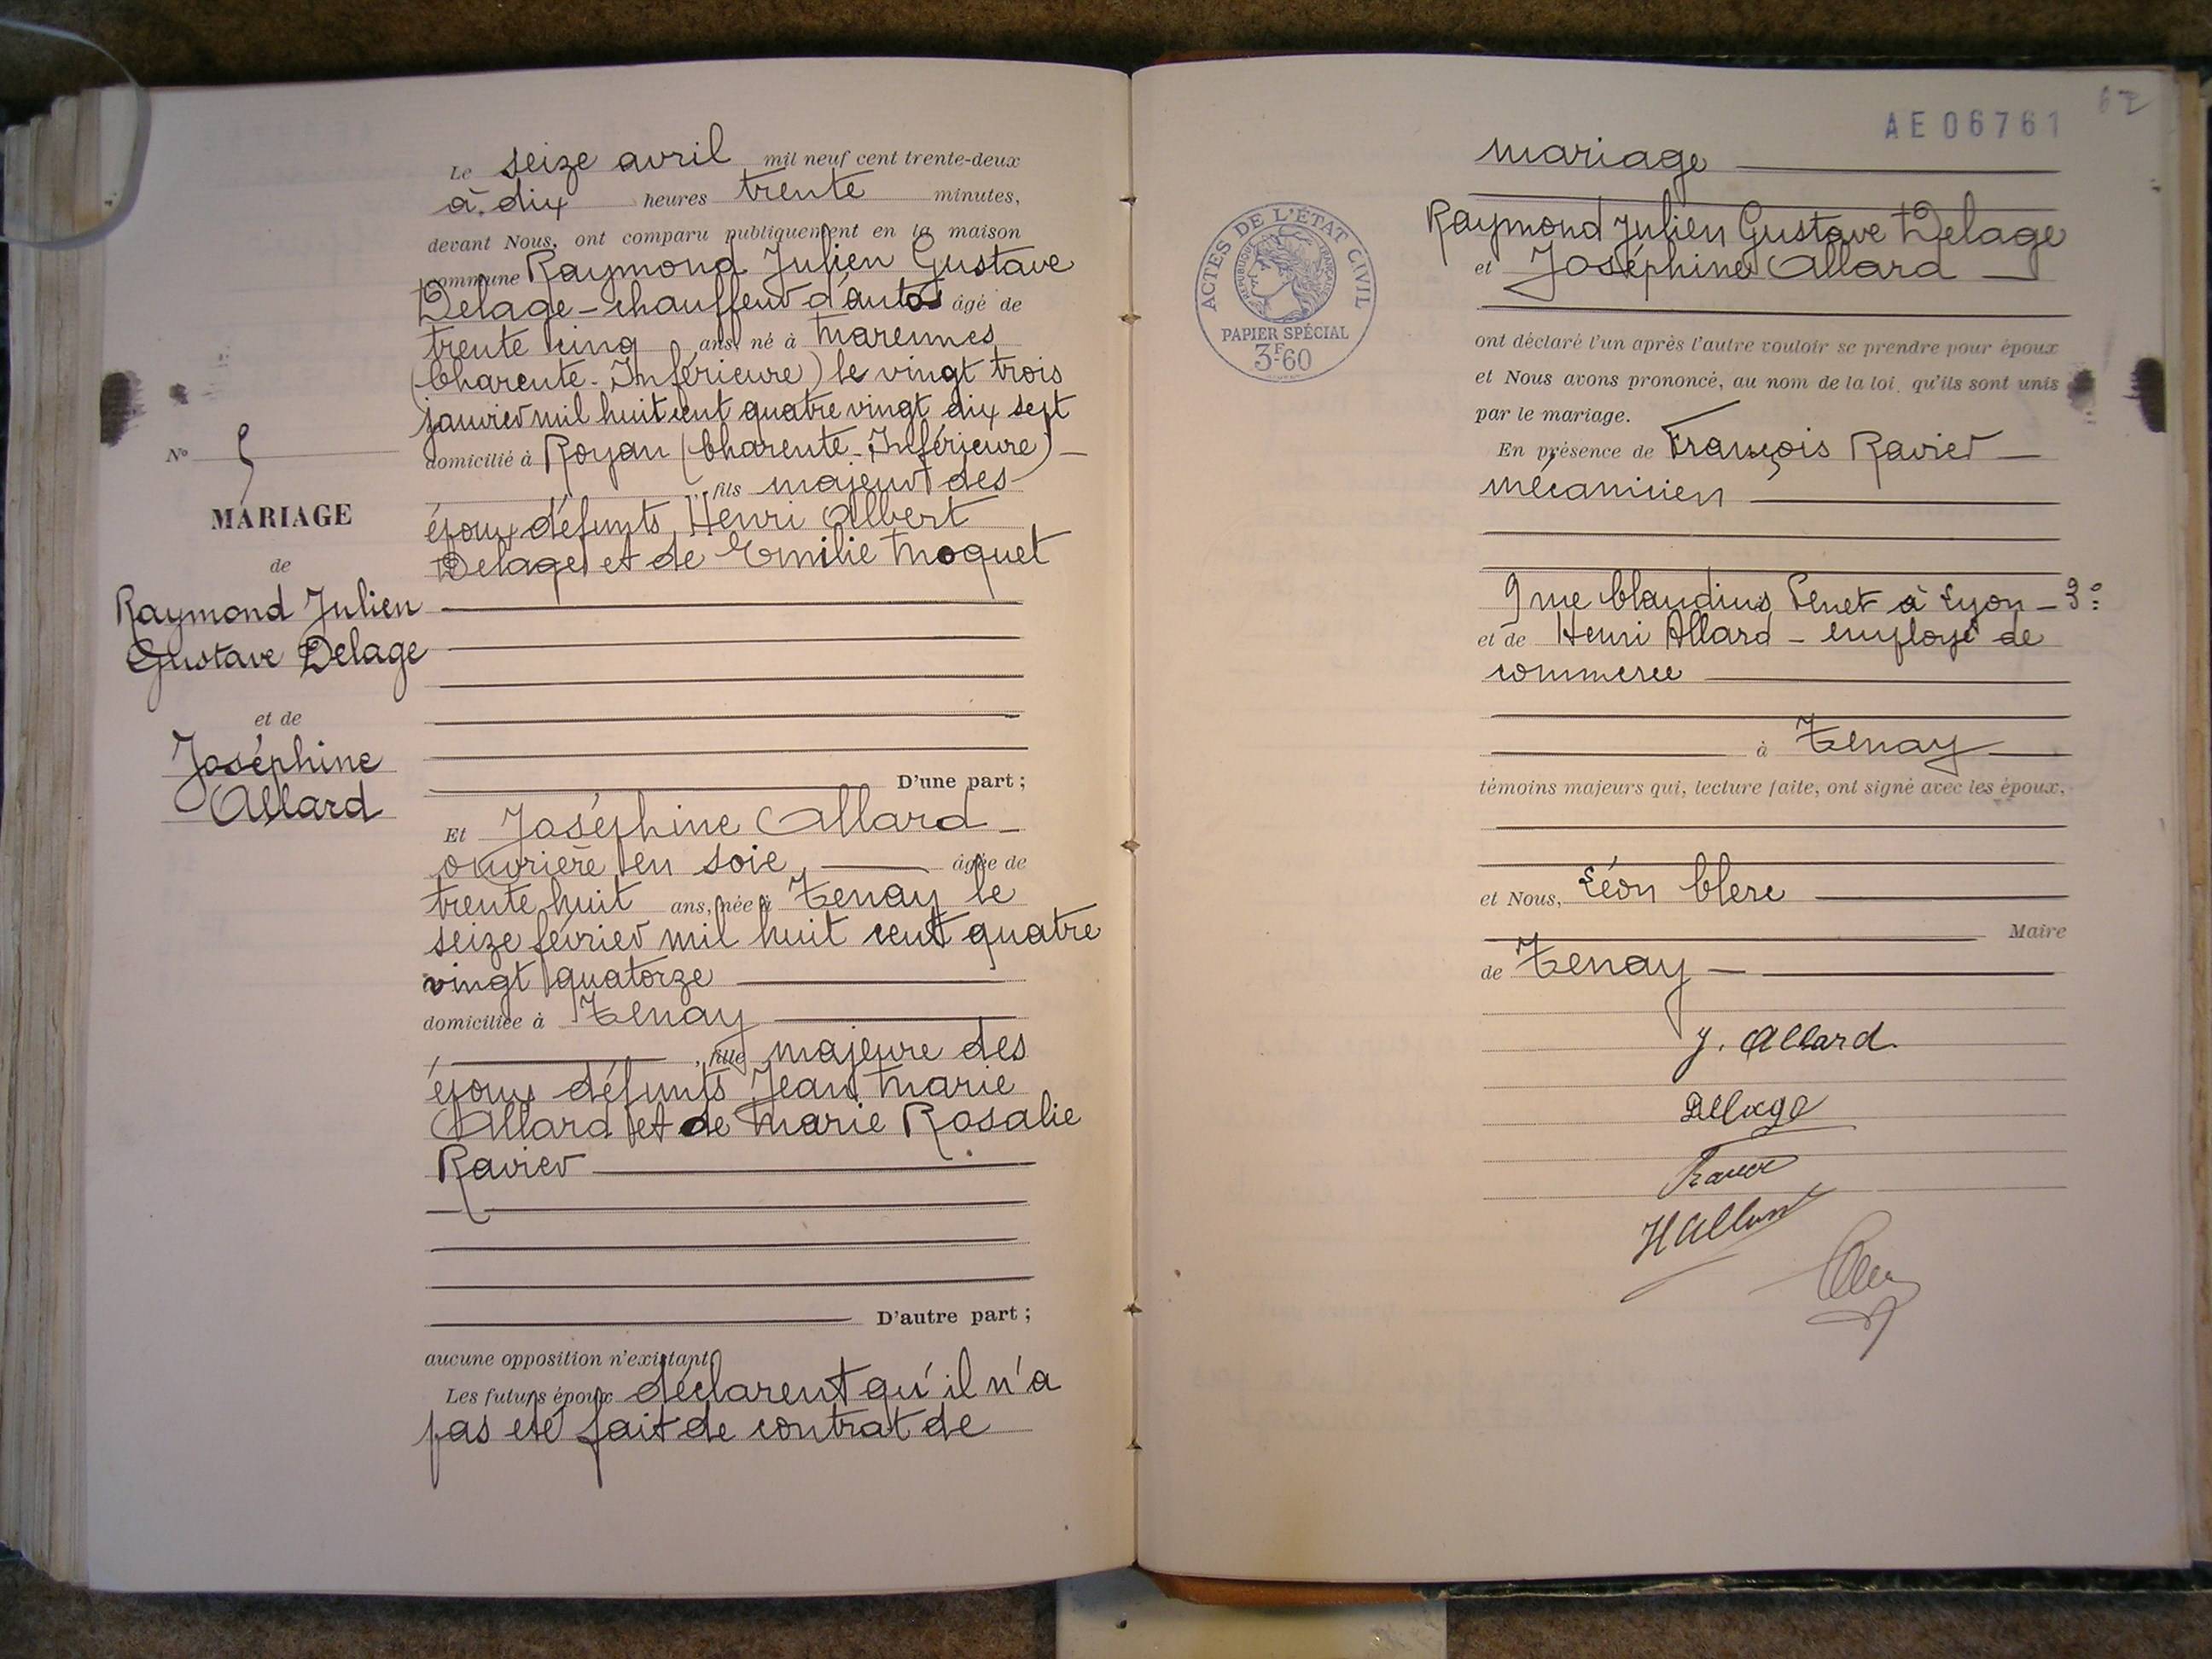 N° 5
MARIAGE
de
Raymond Julien
Gustave Delage
et de
Joséphine
Allard
Le seize avril mil neuf cent trente-deux
à dix heures trente minutes,
devant Nous, ont comparu publiquement en la maison
commune Raymond Julien Gustave
Delage - chauffeur d'autos âgé de
trente cinq ans, né à Marennes
(Charente-Inférieure) le vingt trois
janvier mil huit cent quatre vingt dix sept
domicilié à Royan (Charente-Inférieure) -
, fils majeur des
époux défunts Henri Albert
Delage et de Emilie Moquet
D'une part ;
Et Joséphine Allard -
ouvrière en soie âgée de
trente huit ans, née à Tenay le
seize février mil huit cent quatre
vingt quatorze
domiciliée à Tenay
, fille majeure des
époux défunts Jean Marie
Allard et de Marie Rosalie
Ravier
D'autre part ;
aucune opposition n'existant
Les futurs époux déclarent qu'il n'a
pas été fait de contrat de
AE06761
62
mariage
Raymond Julien Gustave Delage
et Joséphine Allard
ACTES DE L'ÉTAT CIVIL
RÉPUBLIQUE FRANÇAISE
PAPIER SPÉCIAL
3F60
ont déclaré l'un après l'autre vouloir se prendre pour époux
et Nous avons prononcé, au nom de la loi, qu'ils sont unis
par le mariage.
En présence de François Ravier -
mécanicien
9 rue Claudius Penet à Lyon - 3e
et de Henri Allard - employé de
commerce
à Tenay
témoins majeurs qui, lecture faite, ont signé avec les époux,
et Nous, Léon Clerc
Maire
de Tenay -
J. Allard
Delage
Ravier
H Allard